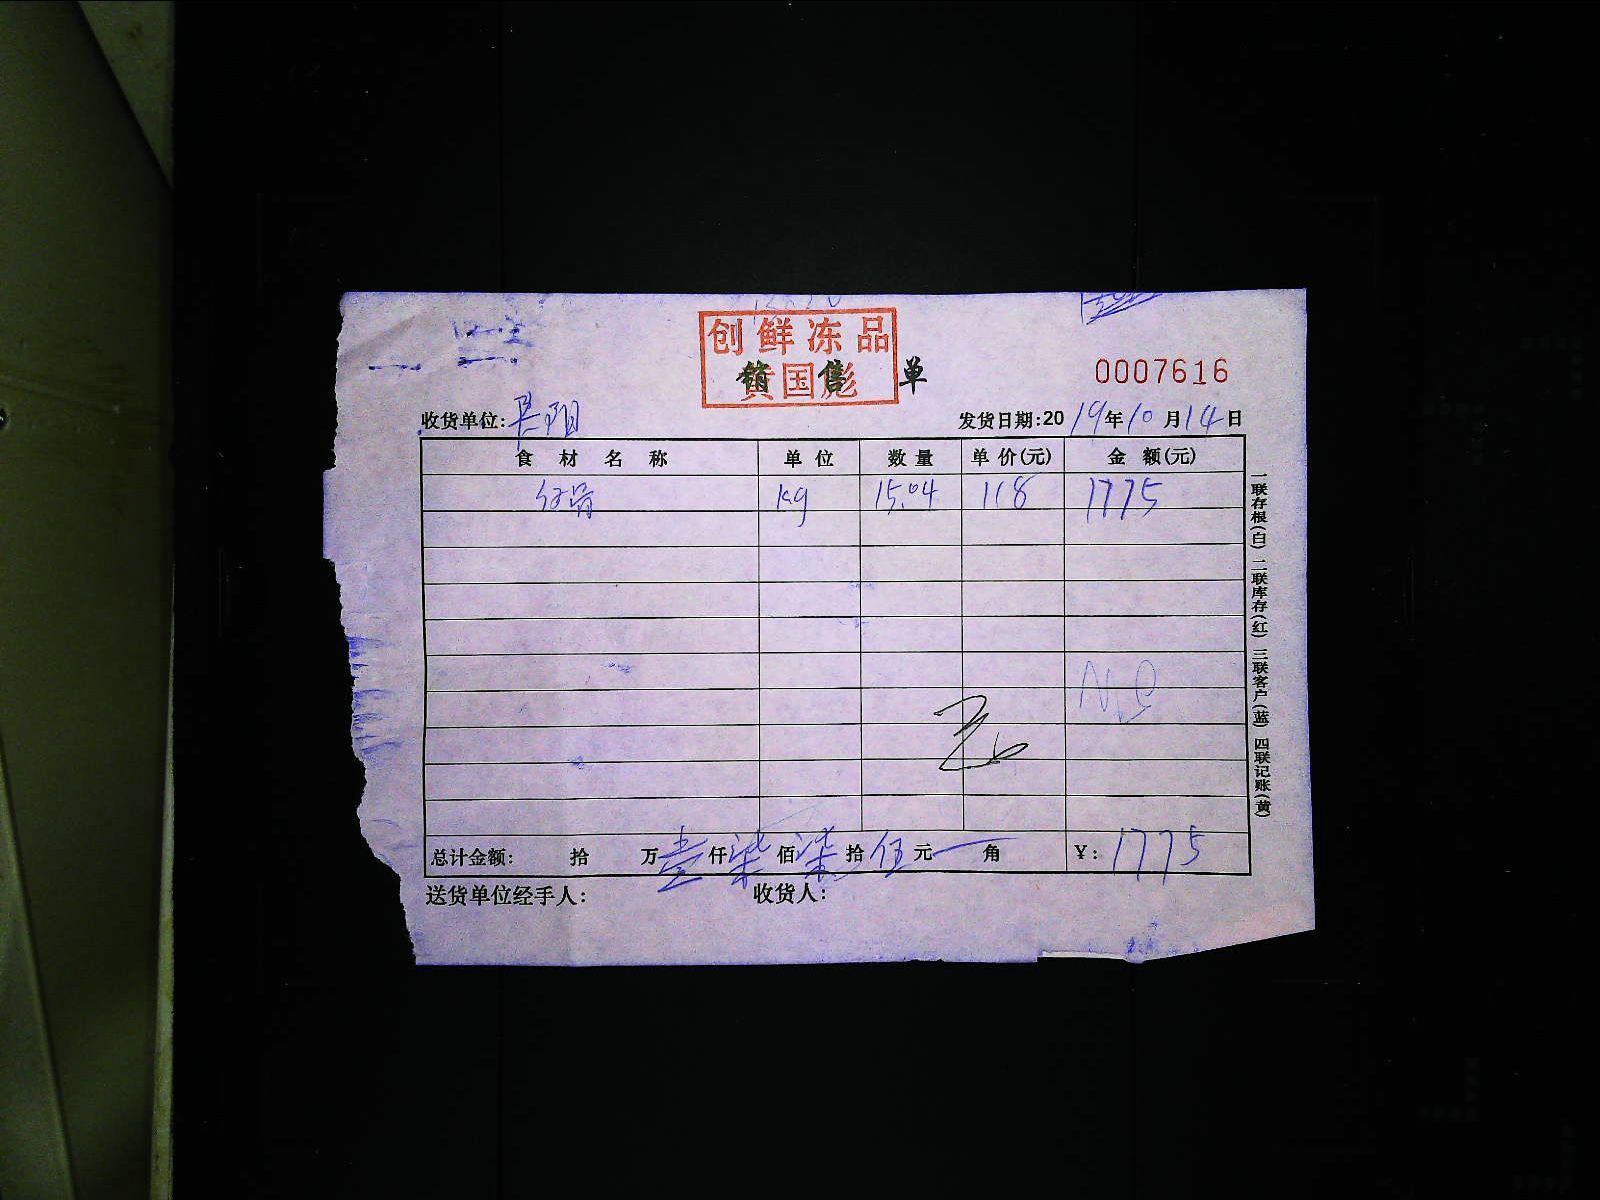 创鲜冻品
黄国彪
销售单
0007616
收货单位:
发货日期:2019年10月14日
食材名称 单位 数量 单价(元) 金额(元)
仔骨 kg 15.04 118 1775
总计金额: 拾 万壹仟柒佰柒拾伍元一角 ¥: 1775
送货单位经手人: 收货人:
一联存根(白) 二联库存(红) 三联客户(蓝) 四联记账(黄)